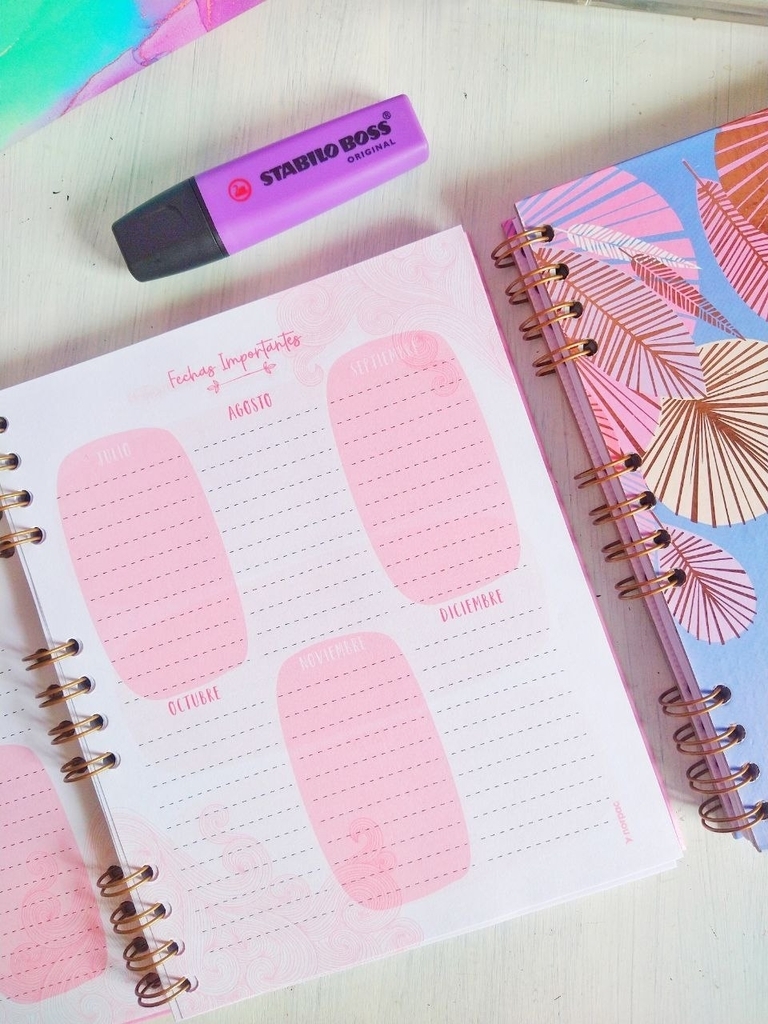 STABILO BOSS®
ORIGINAL
Fechas Importantes
JULIO
AGOSTO
SEPTIEMBRE
OCTUBRE
NOVIEMBRE
DICIEMBRE